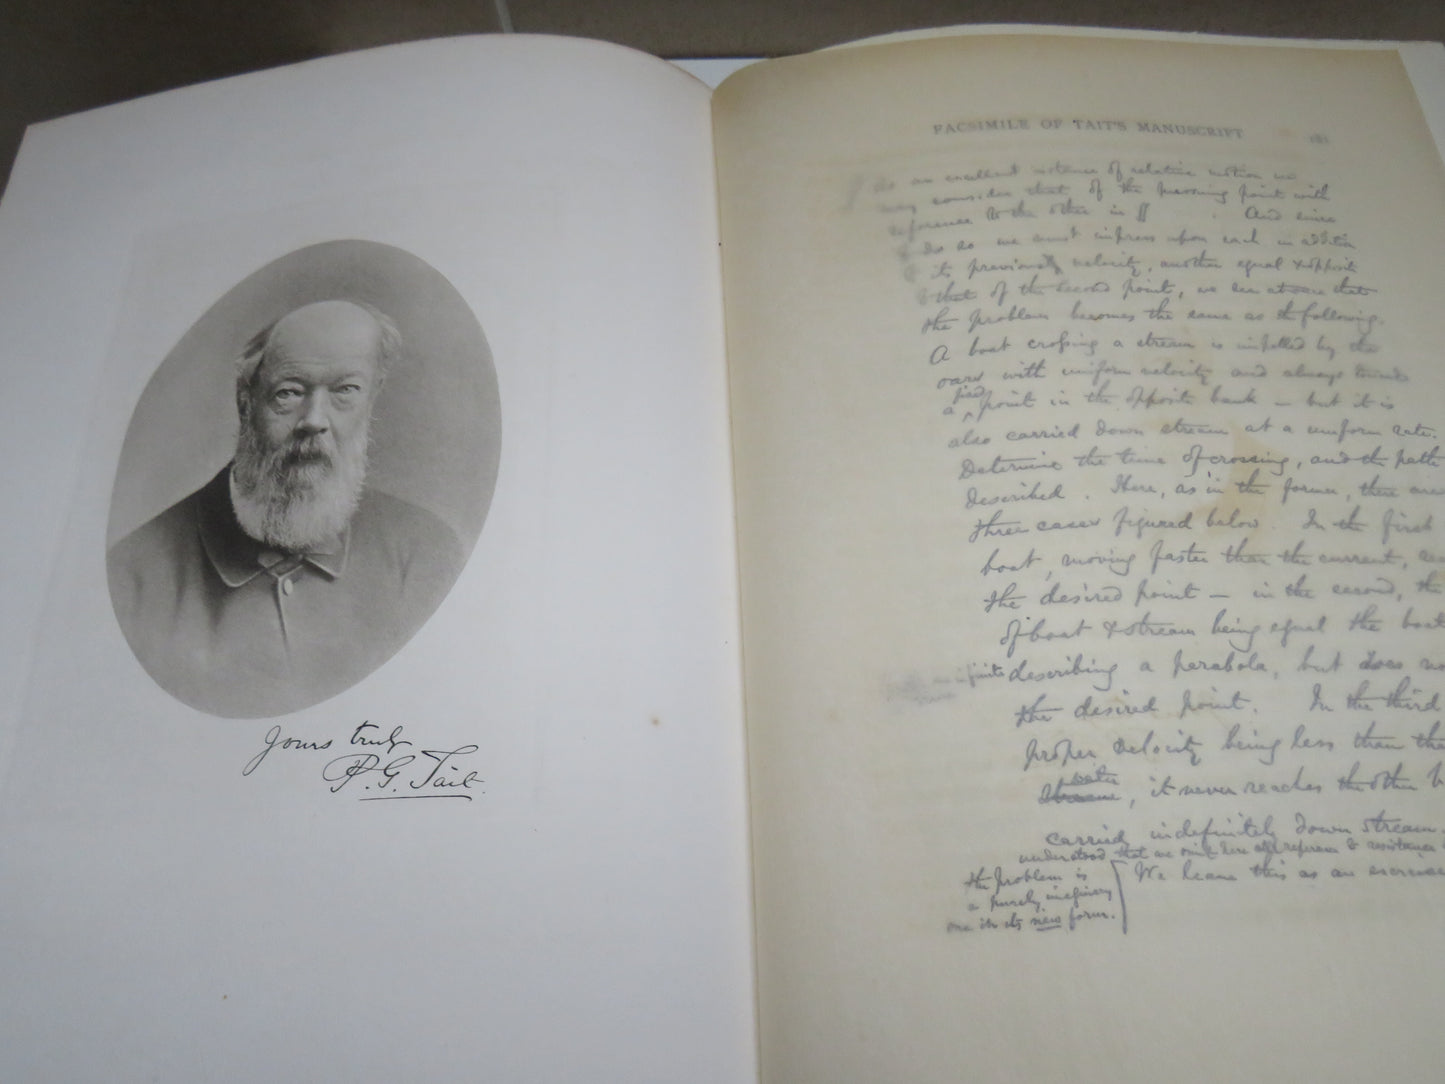 Yours truly
P. G. Tait.
FACSIMILE OF TAIT'S MANUSCRIPT 181
As an excellent instance of relative motion we
may consider that of the pursuing point with
reference to the other in § . And since
to do so we must impress upon each in addition
to its previously velocity, another equal & opposite
to that of the second point, we see at once that
the problem becomes the same as the following.
A boat crossing a stream is impelled by the
oars with uniform velocity and always towards
fixed
a ^ point in the opposite bank – but it is
also carried down stream at a uniform rate.
Determine the time of crossing, and the path
described. Here, as in the former, there are
three cases figured below. In the first
boat, moving faster than the current,
the desired point – in the second, the
of boat & stream being equal the boat
describing a parabola, but does
in infinite time
the desired point. In the third
proper velocity being less than the
water
stream, it never reaches the other
carried indefinitely down stream.
understood that we omit here all reference to resistances
the problem is
a purely imaginary
one in its new form.
We leave this as an exercise